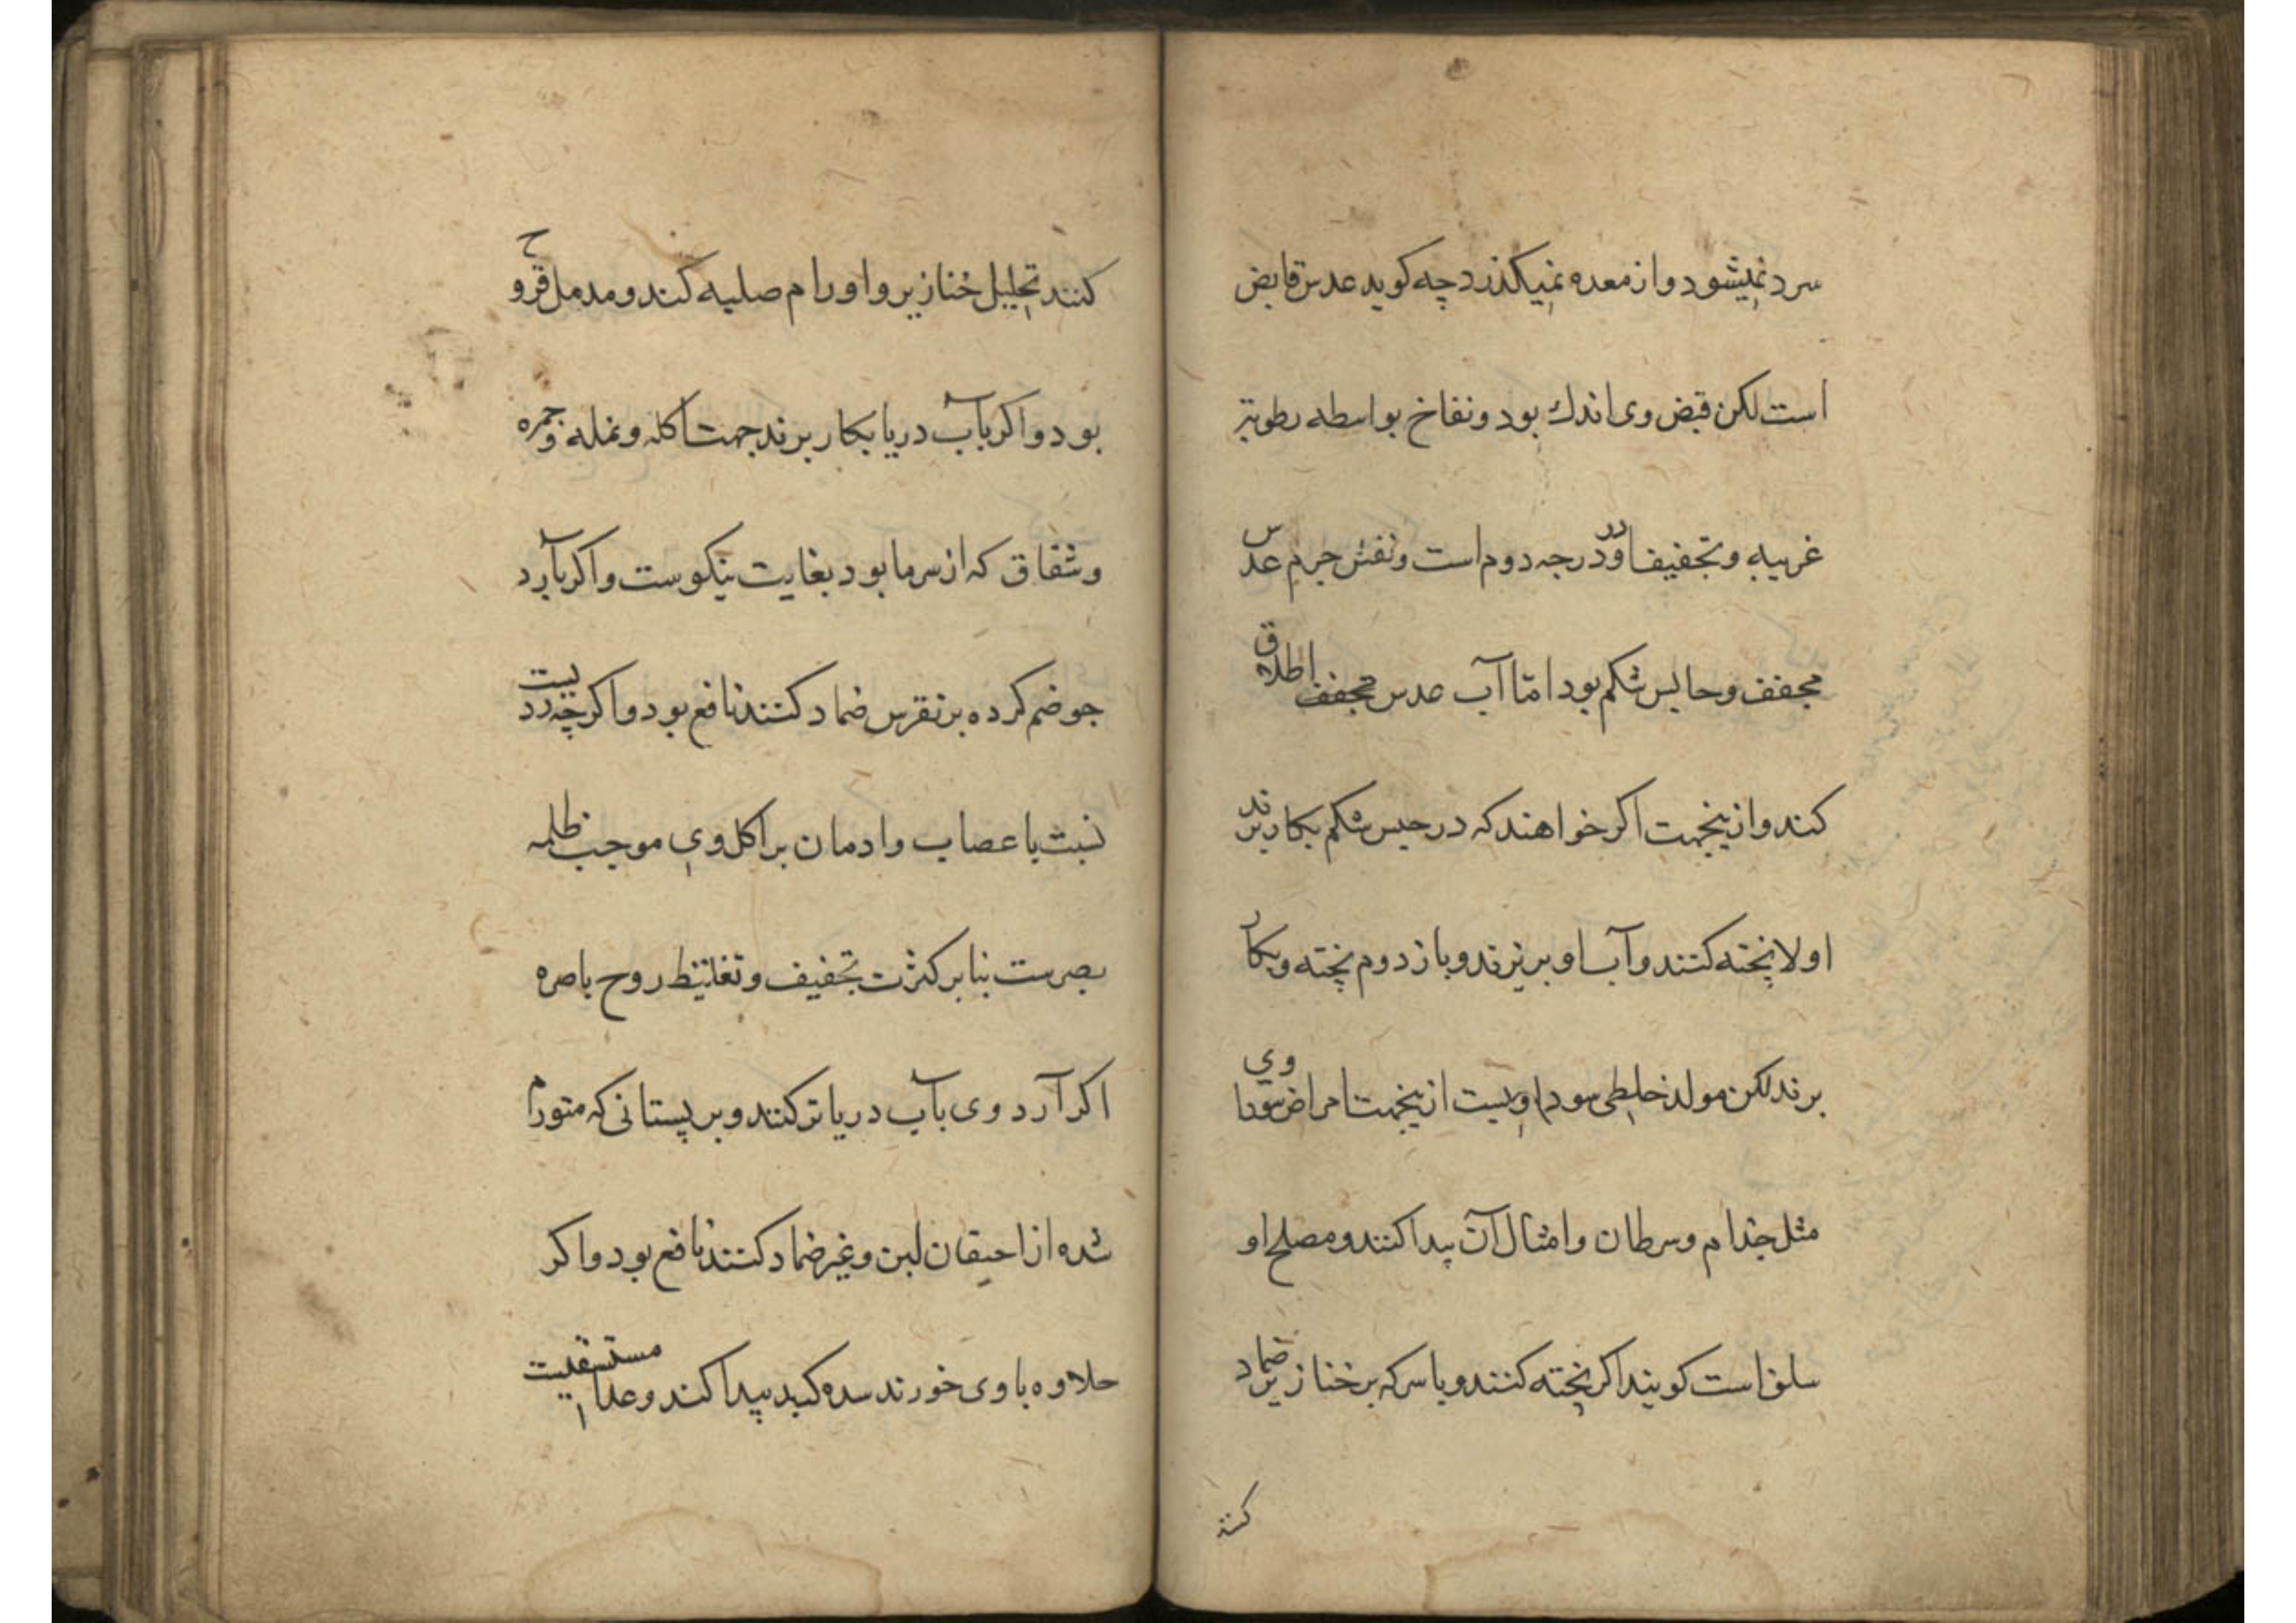 سرد نمیشود و از معده نمیکذرد چه کوید عدس قابض
است لکن قبض وی اندك بود و نفاخ بواسطه رطوبة
غریبه و تجفیف او در درجه دوم است و نفش جرم عدس
مجفف و حابس شکم بود امّا آب عدس مجفف اطلاق
کند و ازینجهت اکر خواهند که در حبس شکم بکار برند
اولا پخته کنند و آب او بریزند و باز دوم پخته و بکار
برند لکن مولد خلطی سوداویست ازینجهت امراض سوداوی
مثل جذام و سرطان و امثال آن پیدا کنند و مصلح او
سلق است کویند اکر پخته کنند و با سرکه بر خنازیر ضماد
کنند
کنند تحلیل خنازیر و اورام صلبه کند و مدمل قروح
بود و اکر بآب دریا بکار برند جهت اکله و نمله و جمره
و شقاق که از سرما بود بغایت نیکوست و اکر بآرد
جو ضم کرده بر نقرس ضماد کنند نافع بود و اکرچه ردیست
نسبت باعصاب و ادمان بر اکل وی موجب ظلمه
بصرست بنا بر کثرت تجفیف و تغلیظ روح باصره
اکر آرد وی بآب دریا تر کنند و بر پستانی که متورم
شده از احتقان لبن و غیر ضماد کنند نافع بود و اکر
حلاوه با وی خورند سده کبد پیدا کند و